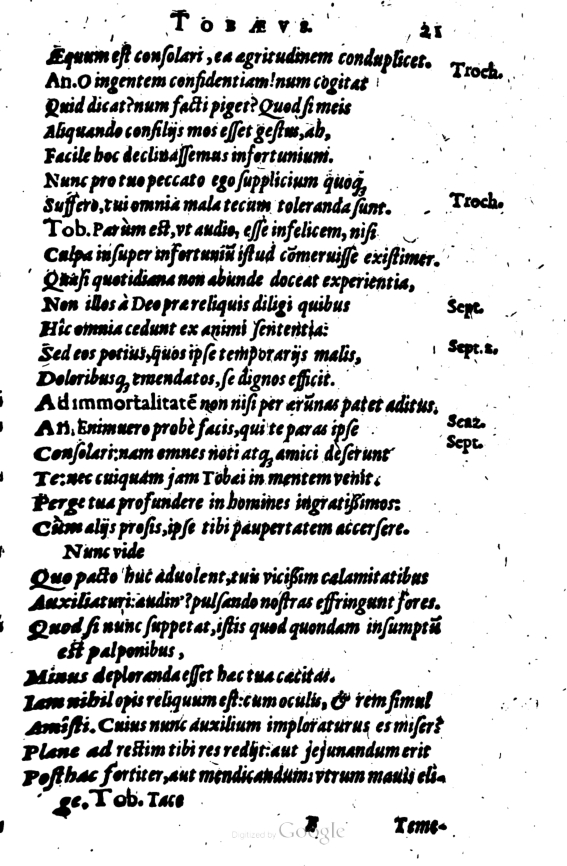 TOBÆVS. 21
Æquum est consolari, ea ægritudinem conduplicet.
An. O ingentem confidentiam! num cogitat Troch.
Quid dicat? num facti piget? Quod si meis
Aliquando consilijs mos esset gestus, ah,
Facile hoc declinassemus infortunium.
Nunc pro tuo peccato ego supplicium quoq;
Suffero, tui omnia mala tecum toleranda sunt. Troch.
Tob. Parùm est, vt audio, esse infelicem, nisi
Culpa insuper infortuniū istud cōmeruisse existimer.
Quasi quotidiana non abunde doceat experientia,
Non illos à Deo præ reliquis diligi quibus Sept.
Hic omnia cedunt ex animi sententia:
Sed eos potius, quos ipse temporarijs malis, Sept. 2.
Doloribusq; emendatos, se dignos efficit.
Ad immortalitatē non nisi per ærūnas patet aditus.
An. Enimuero probè facis, qui te paras ipse Senz.
Consolari: nam omnes noti atq; amici deserunt Sept.
Te: nec cuiquam jam Tobæi in mentem venit.
Perge tua profundere in homines ingratißimos:
Cùm alijs prosis, ipse tibi paupertatem accersere.
Nunc vide
Quo pacto huc aduolent, tuis vicißim calamitatibus
Auxiliaturi: audin'? pulsando nostras effringunt fores.
Quod si nunc suppetat, istis quod quondam insumptū
est palponibus,
Minus deploranda esset hæc tua cæcitas.
Iam nihil opis reliquum est: cum oculis, & rem simul
Amisti. Cuius nunc auxilium imploraturus es miser?
Plane ad restim tibi res redijt: aut jejunandum erit
Posthac fortiter, aut mendicandum: vtrum mauis eli-
ge. Tob. Tace
B Teme-
Digitized by Google